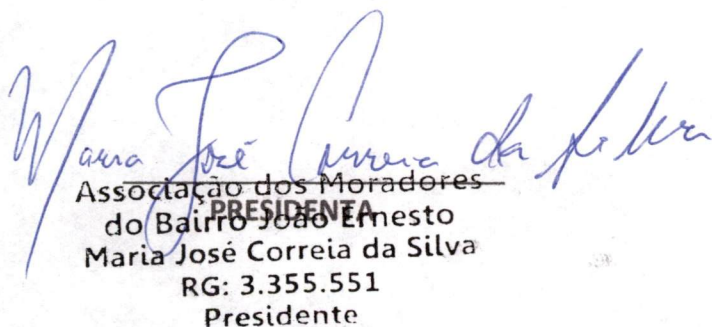 Maria José Correia da Silva
Associação dos Moradores
PRESIDENTA
do Bairro João Ernesto
Maria José Correia da Silva
RG: 3.355.551
Presidente